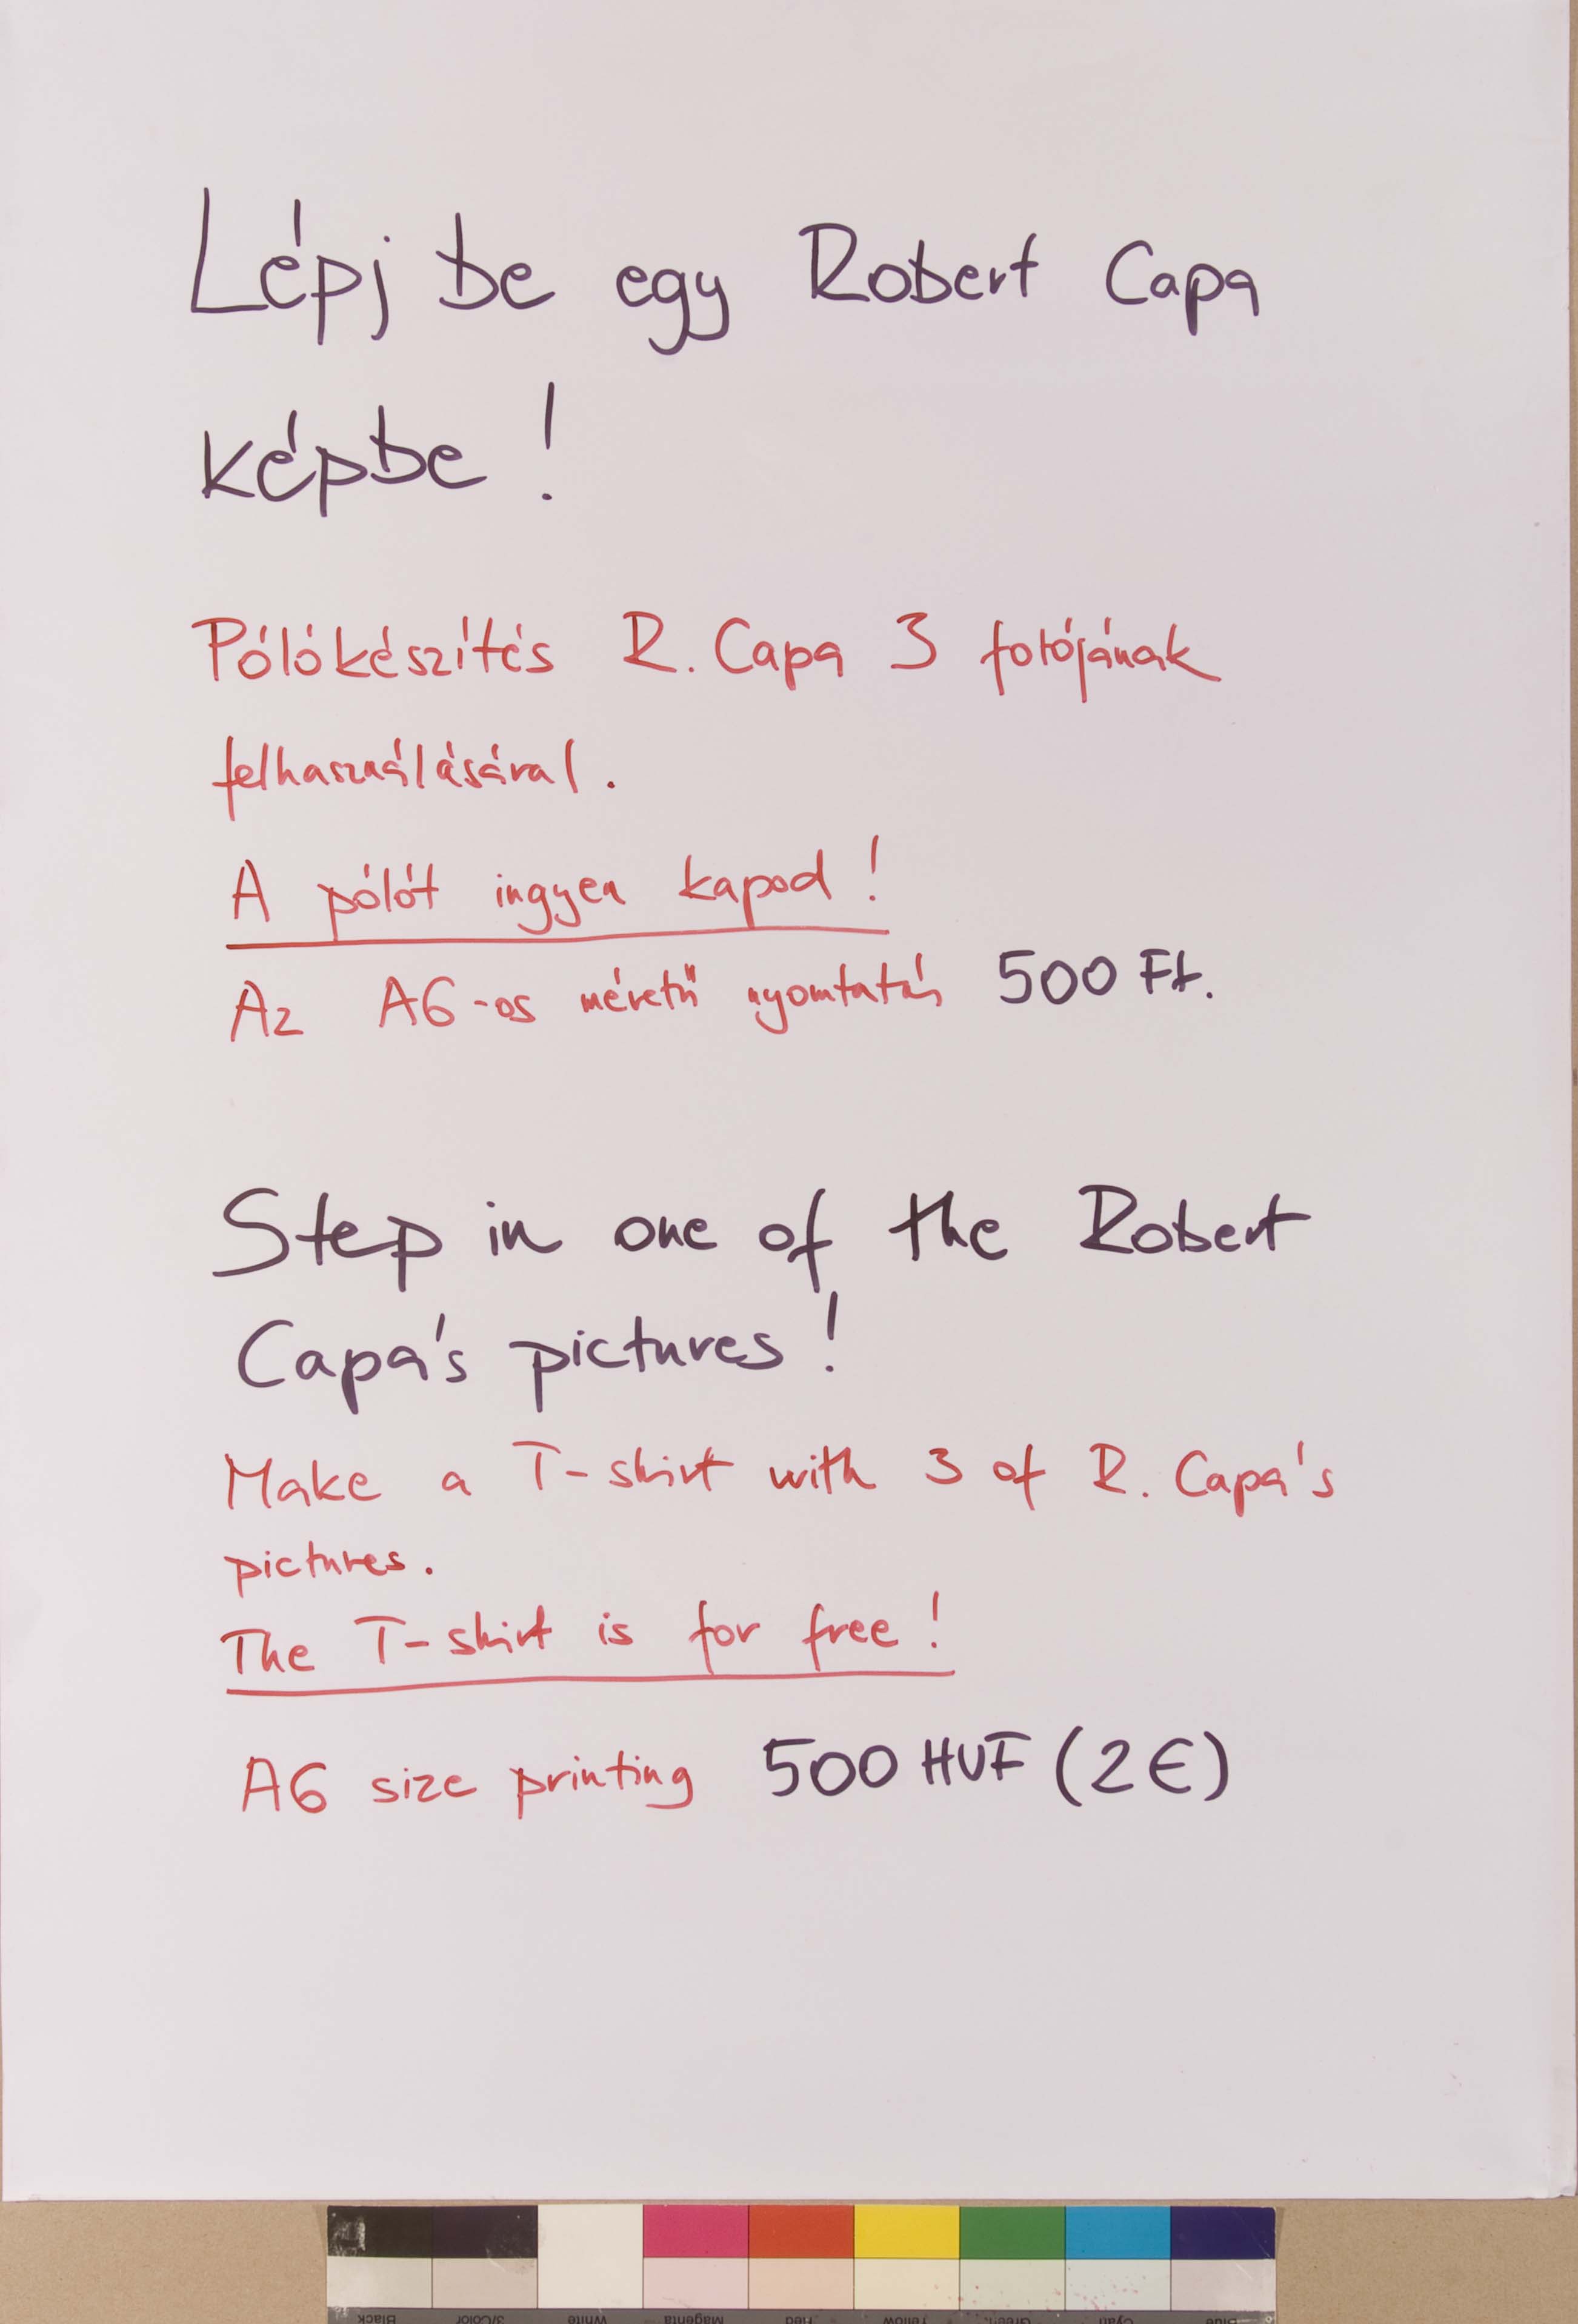 Lépj be egy Robert Capa
képbe!
Pólókészítés R. Capa 3 fotójának
felhasználásával.
A pólót ingyen kapod!
Az A6-os méretű nyomtatás 500 Ft.
Step in one of the Robert
Capa's pictures!
Make a T-shirt with 3 of R. Capa's
pictures.
The T-shirt is for free!
A6 size printing 500 HUF (2€)
Black 3/Color White Magenta Red Yellow Green Cyan Blue